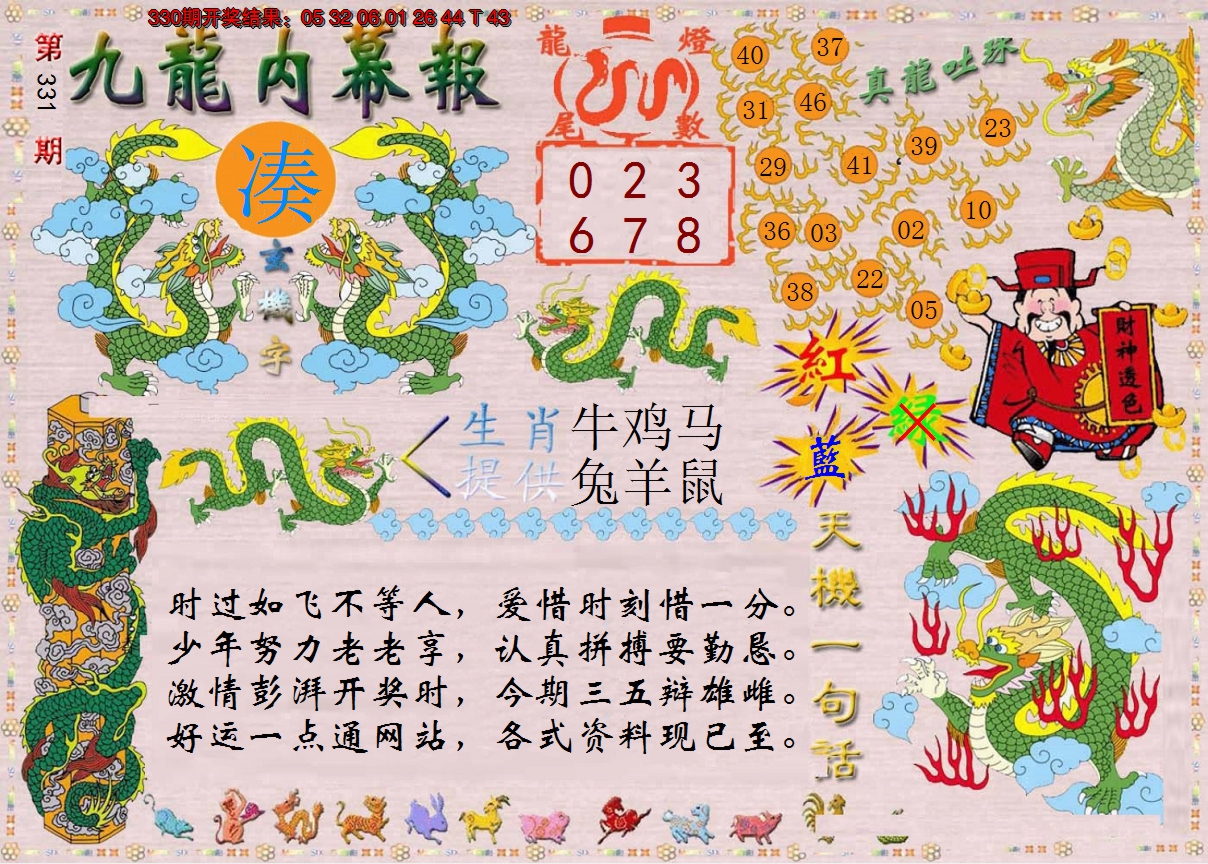 330期开奖结果：05 32 06 01 26 44 T 43
第331期
九龍内幕報
龍燈
尾數
0 2 3
6 7 8
真龍吐珠
40
37
31
46
29
41
39
23
36
03
02
10
38
22
05
凑
玄機字
紅
绿
藍
財神透色
生肖 牛鸡马
提供 兔羊鼠
天機一句話
时过如飞不等人，爱惜时刻惜一分。
少年努力老老享，认真拼搏要勤恳。
激情彭湃开奖时，今期三五辩雄雌。
好运一点通网站，各式资料现已至。